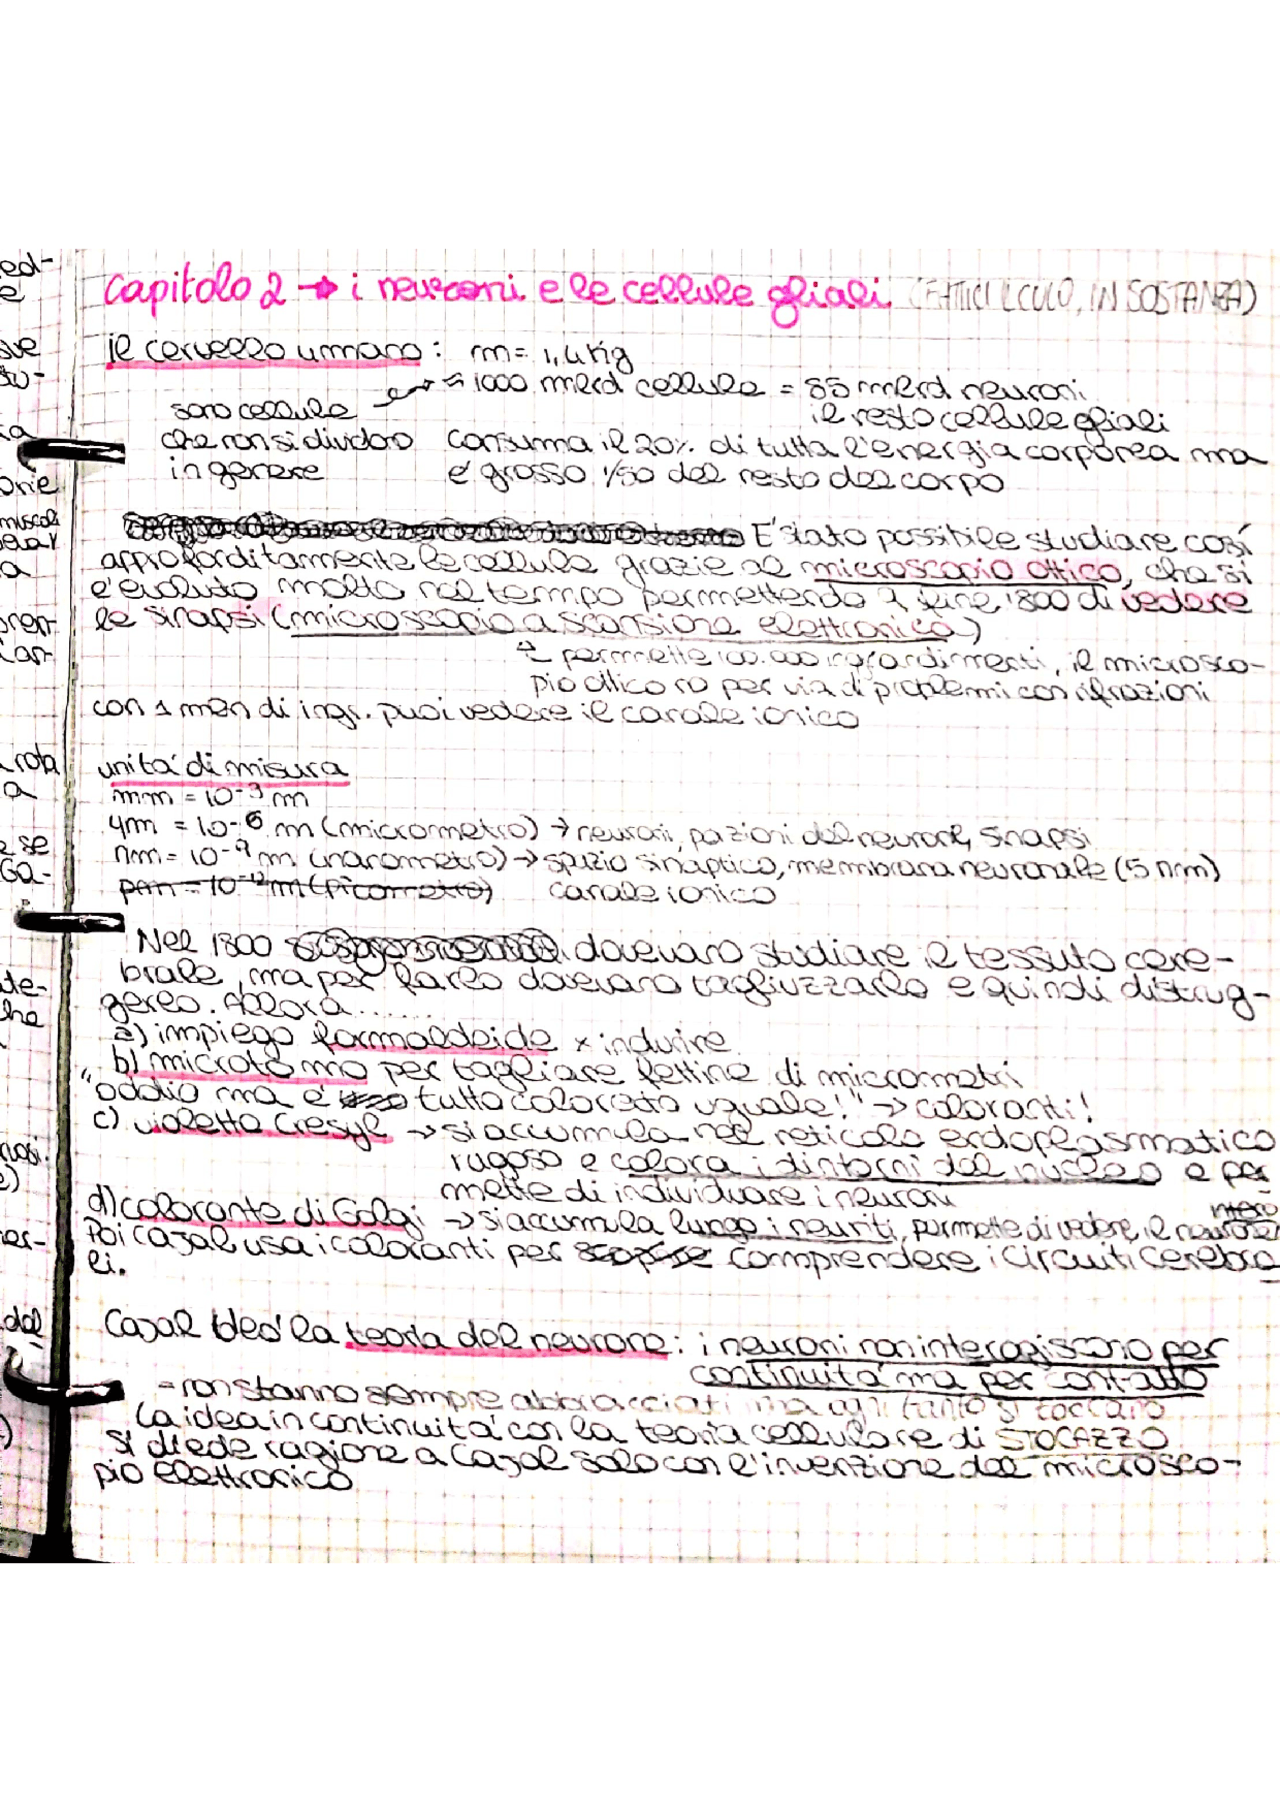 Capitolo 2 → i neuroni e le cellule gliali (FATTICI LCULO, IN SOSTANZA)
il cervello umano: m = 1,4 Kg
≈ 1000 mlrd cellule = 85 mlrd neuroni
il resto cellule gliali
sono cellule
che non si dividono
in genere
consuma il 20% di tutta l'energia corporea ma
è grosso 1/50 del resto del corpo
E' stato possibile studiare così
approfonditamente le cellule grazie al microscopio ottico, che si
è evoluto molto nel tempo permettendo a fine 1800 di vedere
le sinapsi (microscopio a scansione elettronico)
permette 100.000 ingrandimenti, il microsco-
pio ottico no per via di problemi con rifrazioni
con 1 mln di ingr. puoi vedere il canale ionico
unità di misura
mm = 10⁻³ m
μm = 10⁻⁶ m (micrometro) → neuroni, porzioni del neurone, sinapsi
nm = 10⁻⁹ m (nanometro) → spazio sinaptico, membrana neuronale (5 nm)
pm = 10⁻¹² m (picometro) canale ionico
Nel 1800 dovevano studiare il tessuto cere-
brale, ma per farlo dovevano tagliuzzarlo e quindi distrug-
gerlo. Allora.......
a) impiego formaldeide x indurire
b) microtomo per tagliare fettine di micrometri
"oddio ma è tutto colorato uguale!" → coloranti!
c) violetto Cresyl → si accumula nel reticolo endoplasmatico
rugoso e colora i dintorni del nucleo e per
mette di individuare i neuroni
d) colorante di Golgi → si accumula lungo i neuriti, permette di vedere il neurone intero
Poi Cajal usa i coloranti per comprendere i circuiti cerebra
li.
Cajal ideò la teoria del neurone: i neuroni non interagiscono per
continuità ma per contatto
= non stanno sempre abbracciati ma ogni tanto si toccano
La idea in continuità con la teoria cellulare di STOCAZZO
Si diede ragione a Cajal solo con l'invenzione del microsco-
pio elettronico